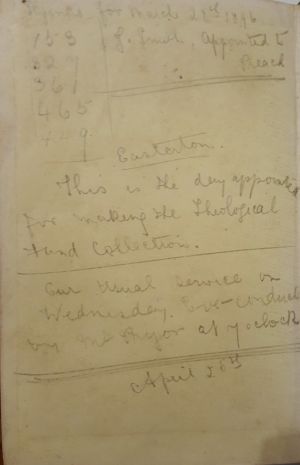 Hymns for March 22nd 1896
153
J. Smith, Appointed to
Preach
327
361
465
9
Easterton.
This is the day appointed
for making the Theological
Fund Collection.
Our Usual Service on
Wednesday Eve- conducted
by Mr Pryor at 7 oclock
April 26th